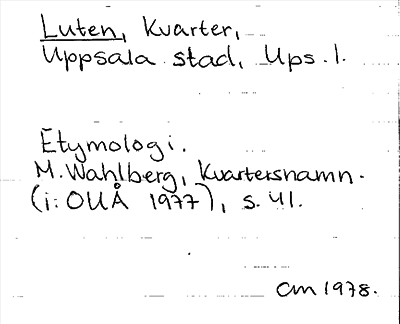 Luten, Kvarter,
Uppsala stad, Ups. l.
Etymologi.
M. Wahlberg, Kvartersnamn.
(i: OUÅ 1977), s. 41.
CM 1978.